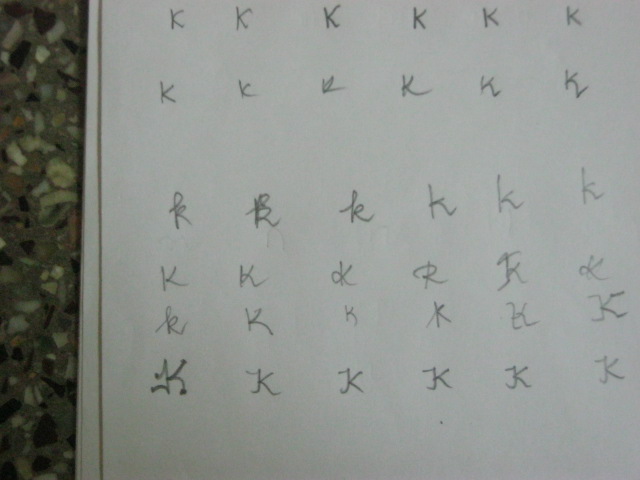 K K K K K K
K K K K K K
k k k k k k
K K K K K K
k K K K K K
K K K K K K